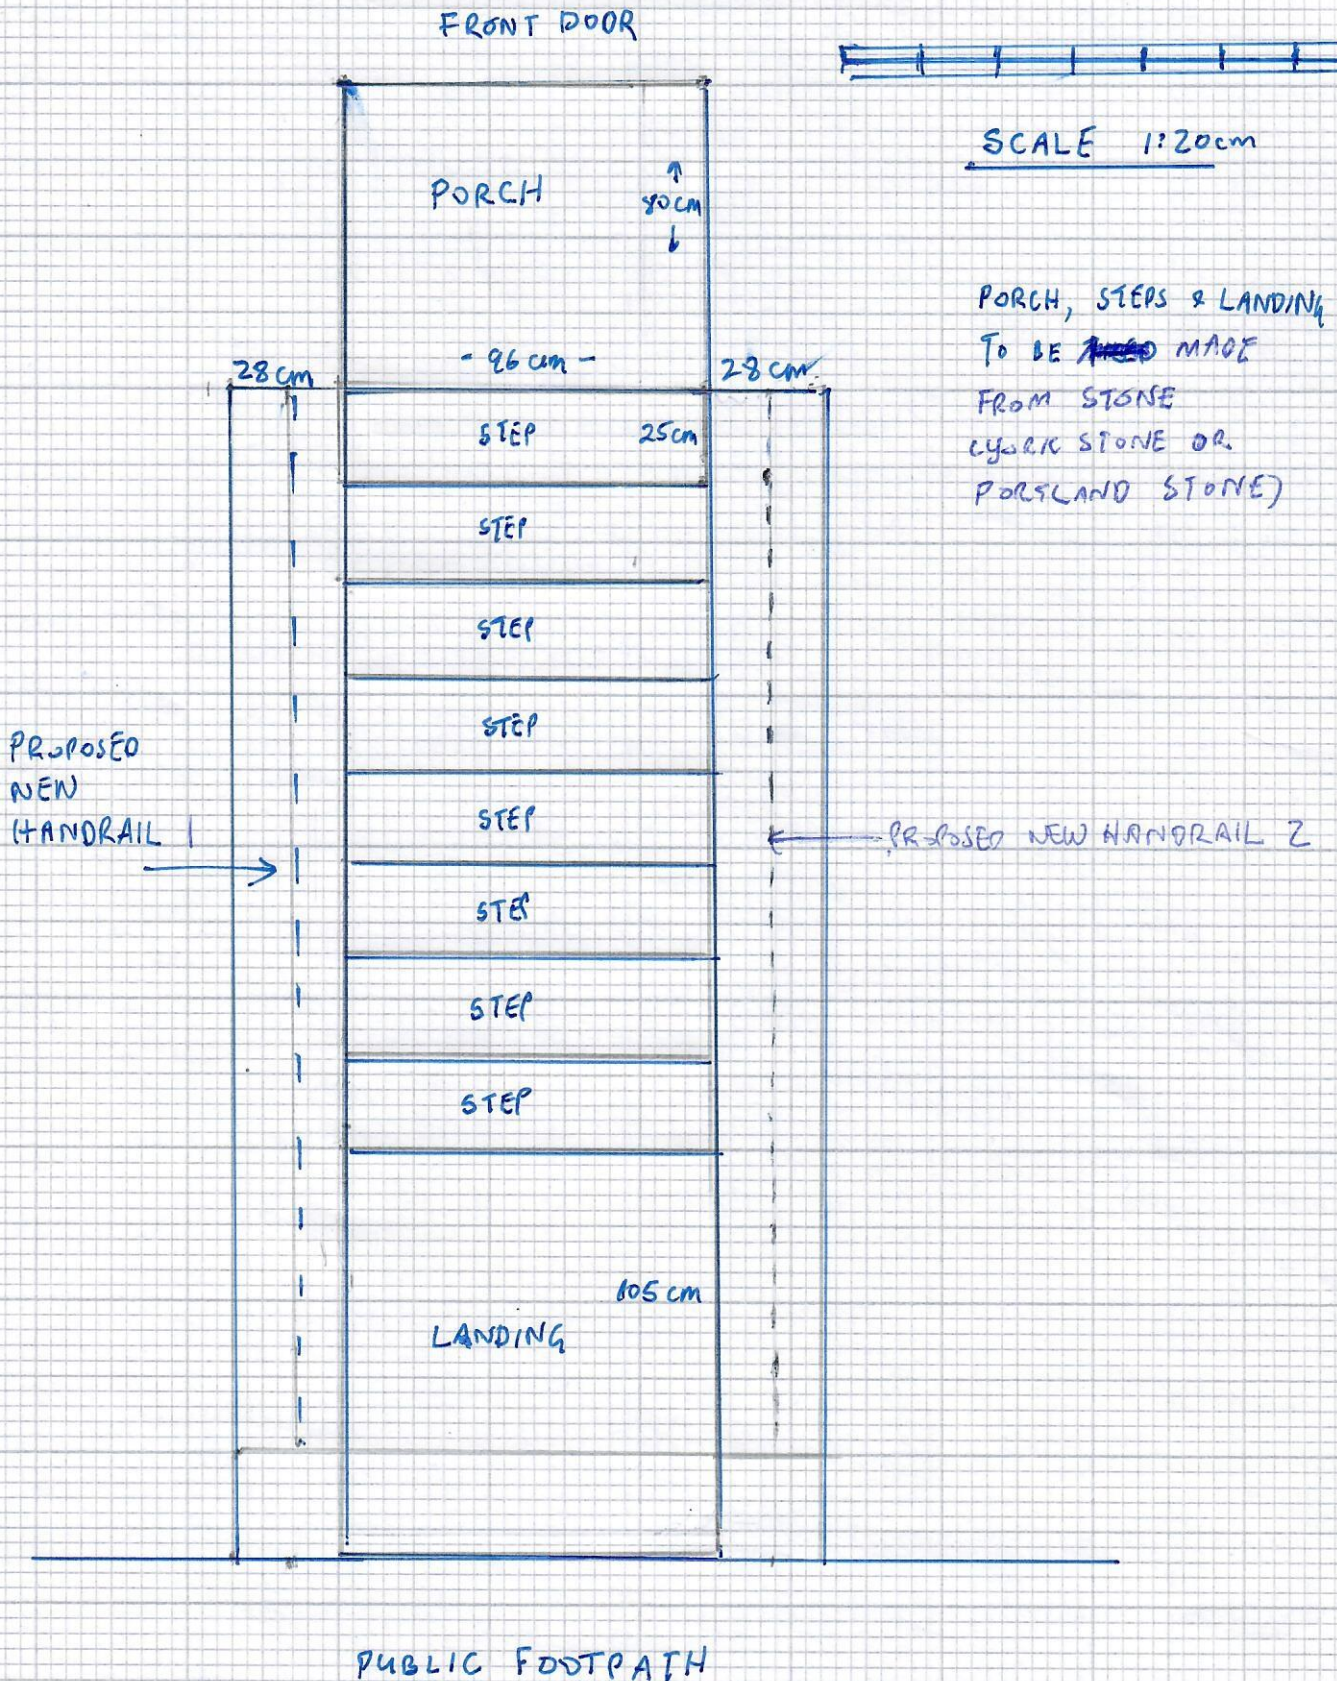 FRONT DOOR
SCALE 1:20cm
PORCH
80cm
PORCH, STEPS & LANDING
TO BE MADE
FROM STONE
(YORK STONE OR
PORTLAND STONE)
28 cm
- 96 cm -
28 cm
STEP
25cm
STEP
STEP
STEP
STEP
STEP
STEP
STEP
PROPOSED
NEW
HANDRAIL 1
PROPOSED NEW HANDRAIL 2
105 cm
LANDING
PUBLIC FOOTPATH